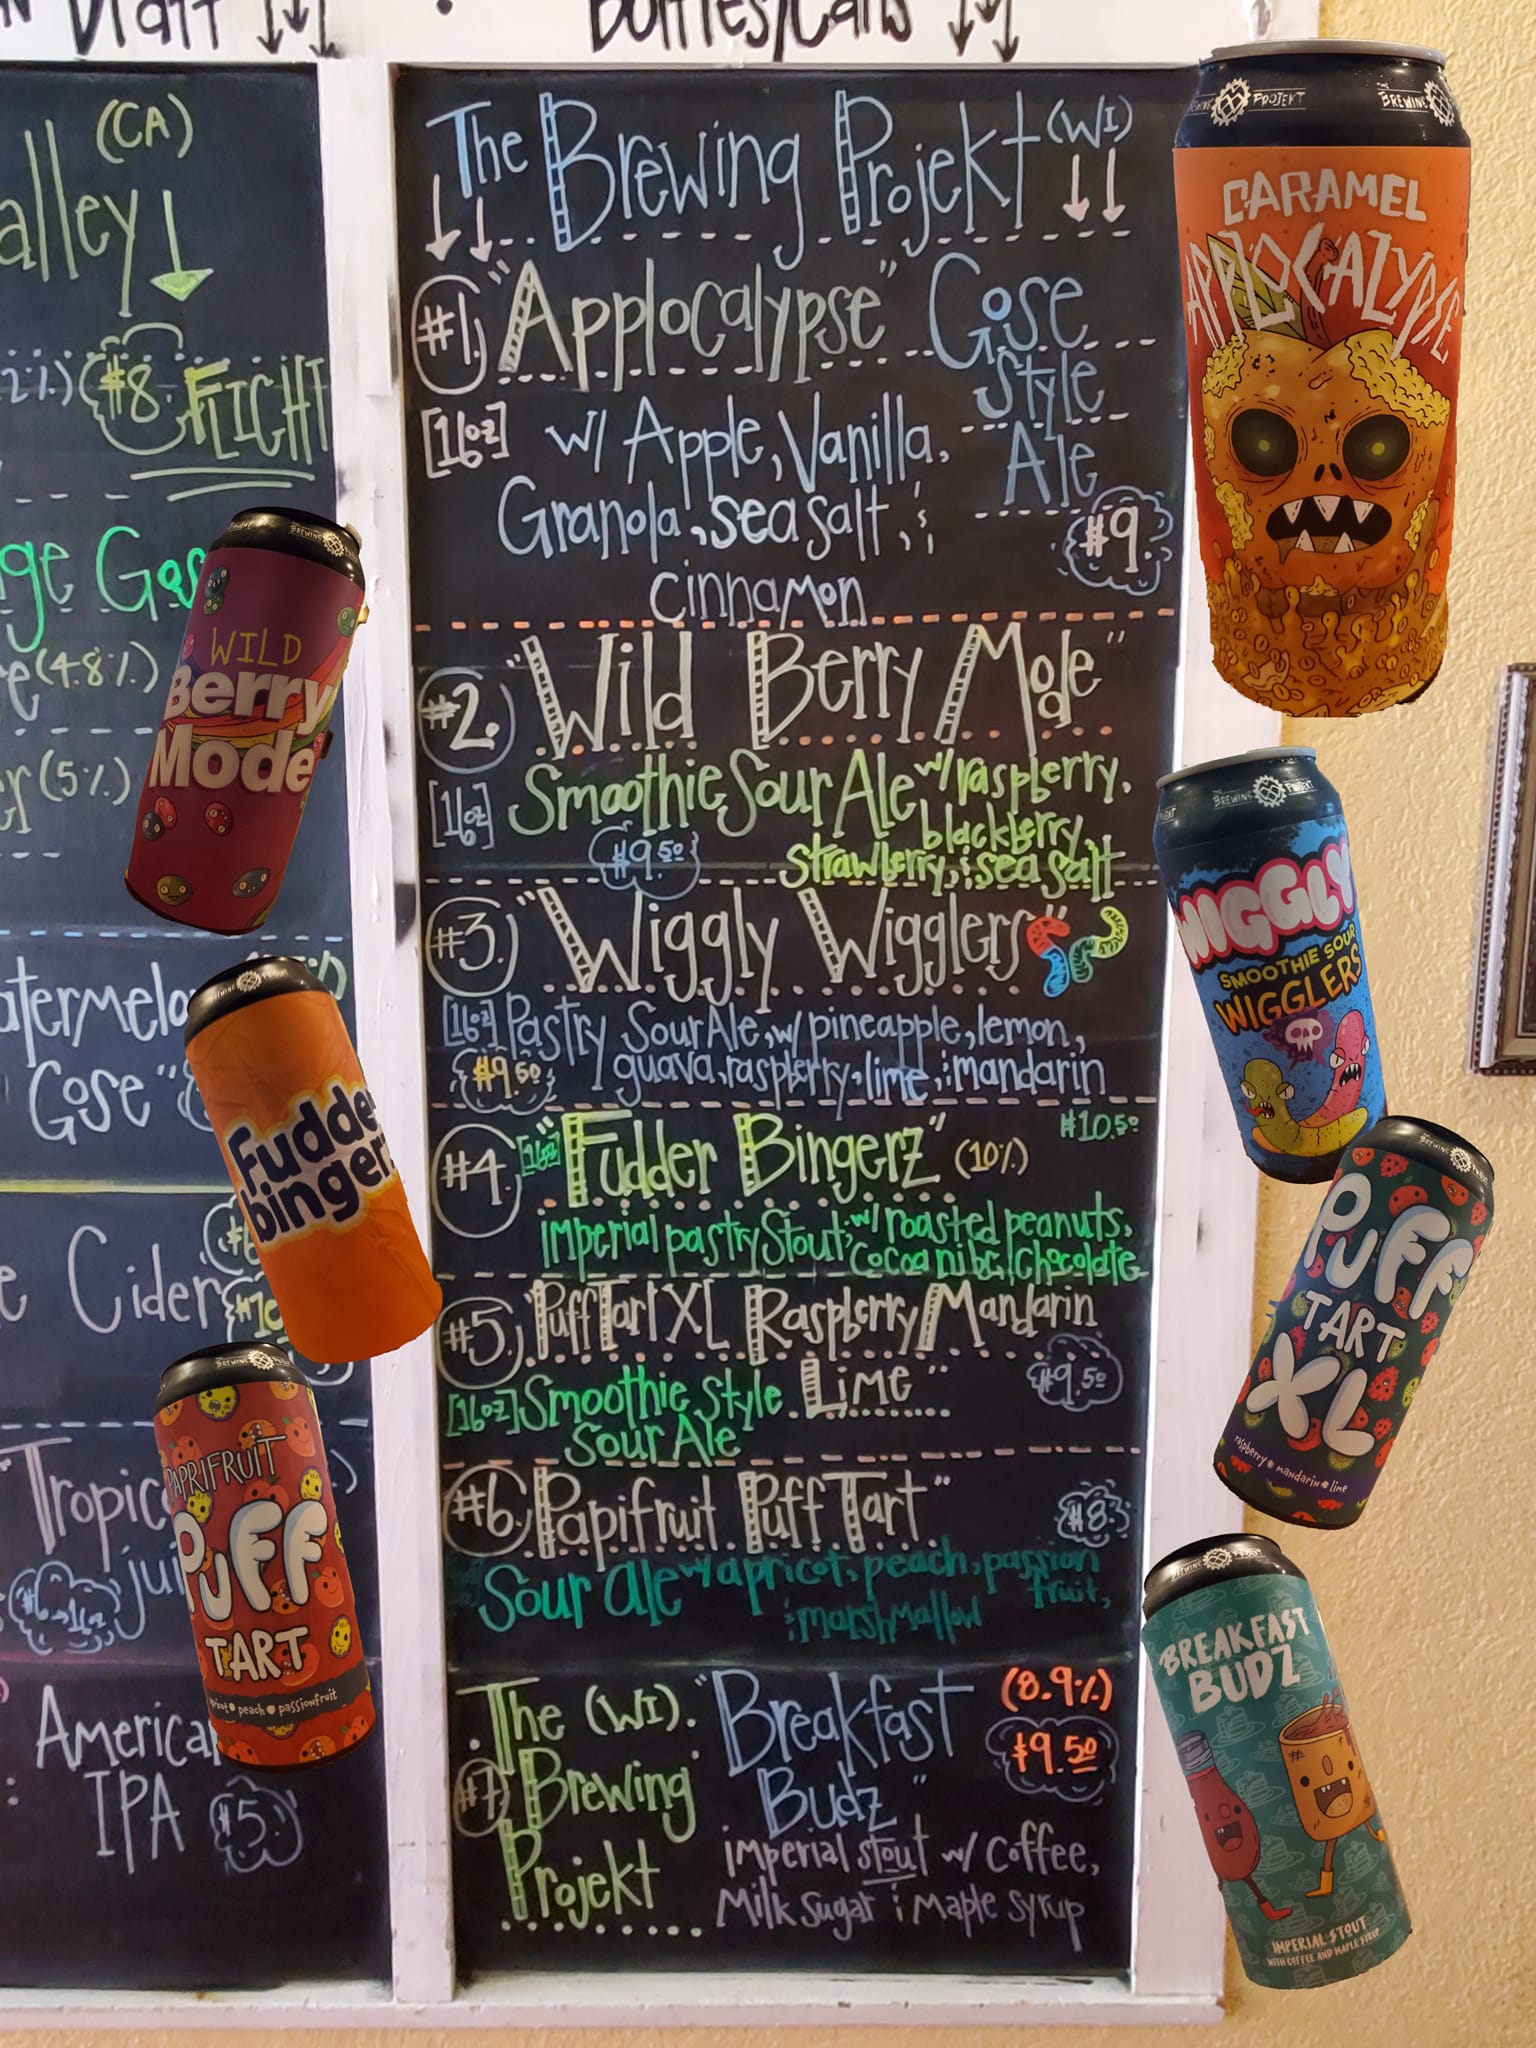 Draft
Bottles/Cans
(CA)
alley
#8. FLIGHT
ge Gos
(4.8%)
er (5%)
atermelo
Gose"
e Cider
Tropic
jui
American
IPA $5.
The Brewing Projekt (WI)
#1. "Applocalypse" Gose
Style
Ale
[16oz] w/ Apple, Vanilla,
Granola, sea salt, &
cinnamon
$9.
#2. "Wild Berry Mode"
[16oz] Smoothie Sour Ale w/ raspberry,
blackberry,
strawberry, & sea salt
$9.50
#3. "Wiggly Wigglers"
[16oz] Pastry Sour Ale, w/ pineapple, lemon,
guava, raspberry, lime, & mandarin
$9.50
#4. [16oz] "Fudder Bingerz" (10%) $10.50
imperial pastry Stout w/ roasted peanuts,
cocoa nibs, chocolate
#5. "Puff Tart XL Raspberry/Mandarin
Lime"
[16oz] Smoothie Style
Sour Ale
$9.50
#6. "Papifruit Puff Tart" $8.
Sour ale w/ apricot, peach, passion
fruit,
& marshmallow
#7. The (WI).
Brewing
Projekt
"Breakfast
Budz"
(8.9%)
$9.50
imperial stout w/ coffee,
Milk Sugar & Maple syrup
THE BREWING PROJEKT
CARAMEL
APPLOCALYPSE
THE BREWING
WILD
Berry
Mode
THE BREWING PROJEKT
WIGGLY
SMOOTHIE SOUR
WIGGLERS
Fudder
bingerz
PUFF
TART
XL
raspberry mandarin lime
BREWING
PAPRIFRUIT
PUFF
TART
apricot peach passionfruit
BREWING PROJEKT
BREAKFAST
BUDZ
IMPERIAL STOUT
WITH COFFEE AND MAPLE SYRUP